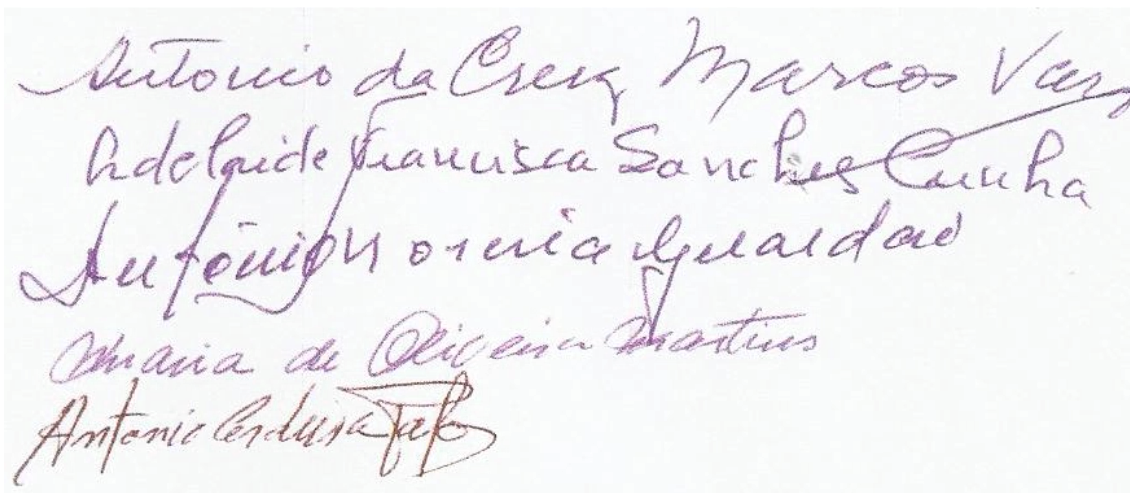 Antonio da Cruz Marcos Vaz
Adelaide Francisca Sanches Cunha
António Moreira
Maria de Oliveira Martins
Antonio